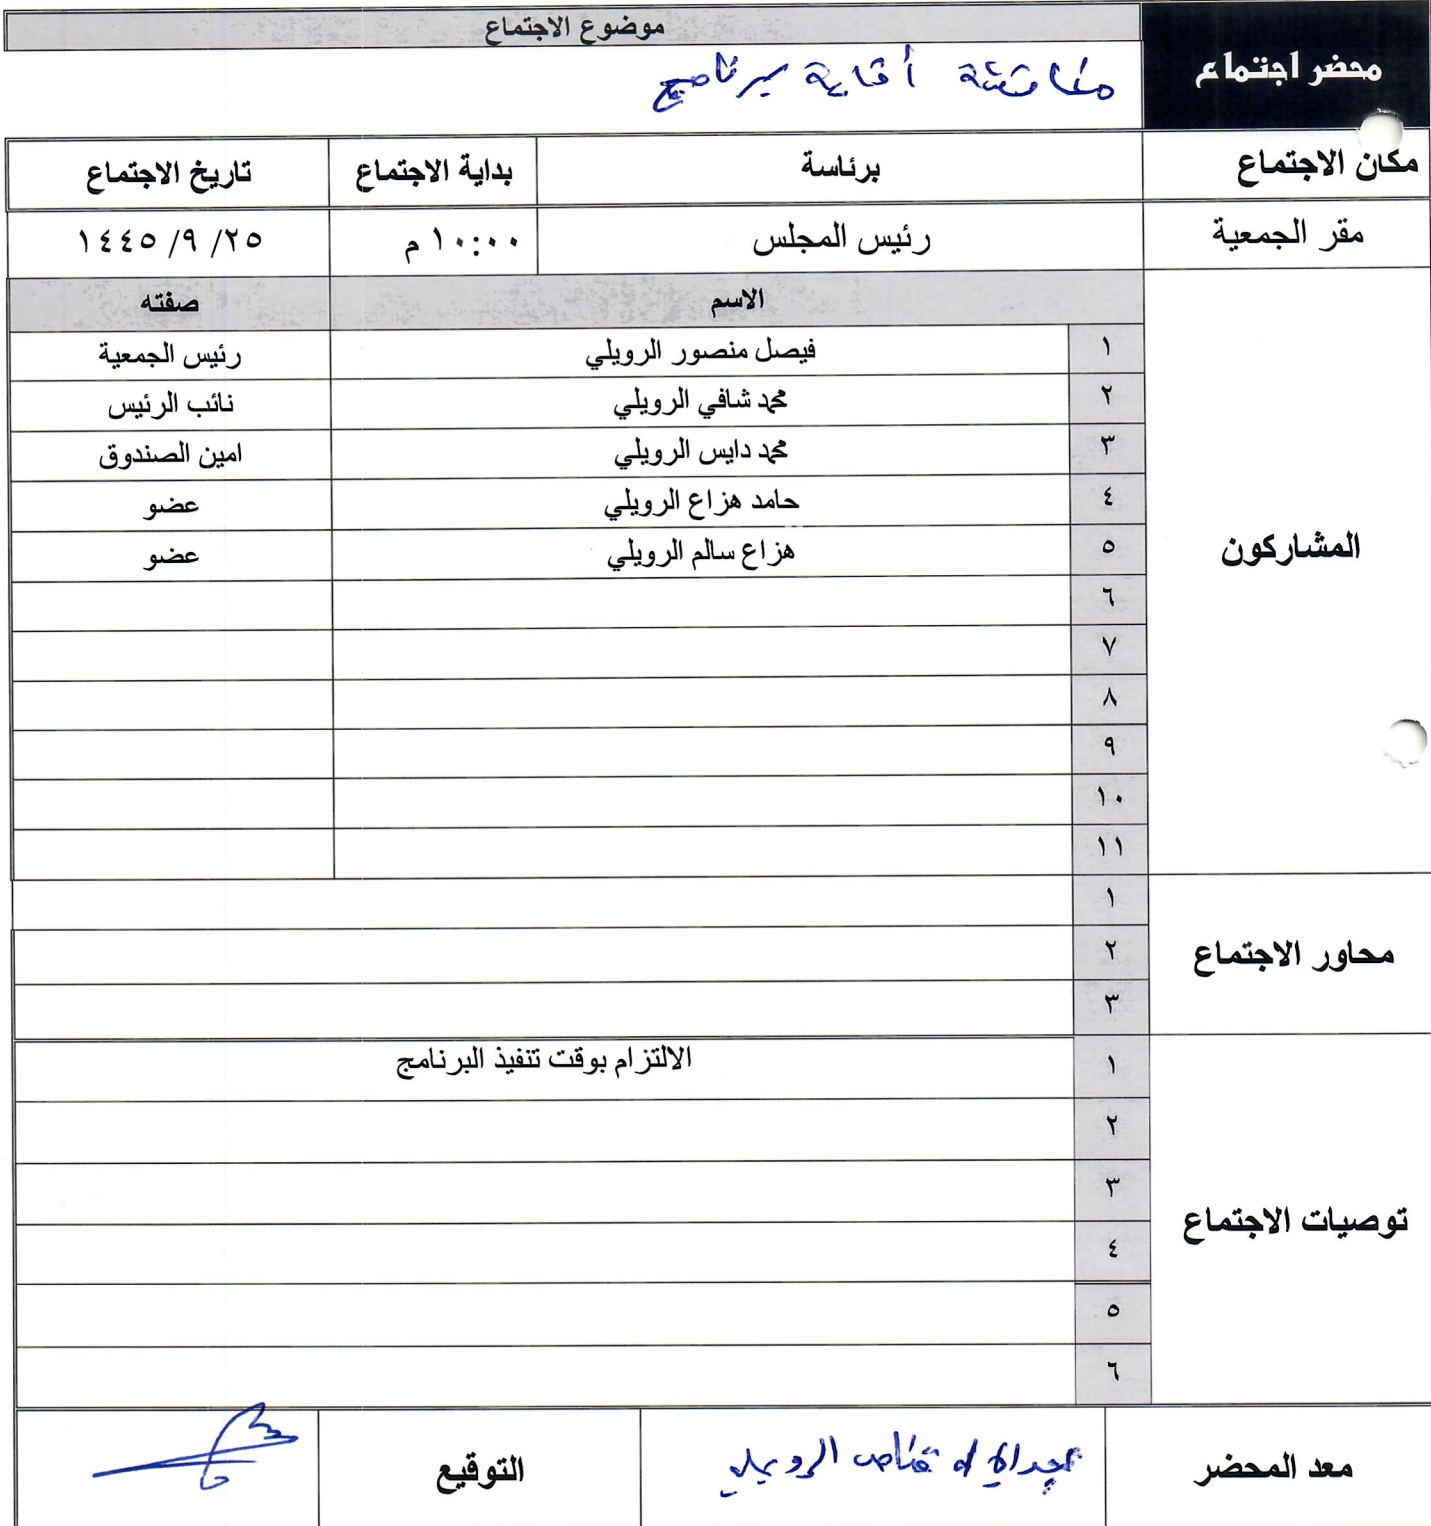 موضوع الاجتماع
محضر اجتماع
مناقشة أقامة برنامج
مكان الاجتماع برئاسة بداية الاجتماع تاريخ الاجتماع
مقر الجمعية رئيس المجلس ١٠:٠٠ م ٢٥/ ٩/ ١٤٤٥
الاسم صفته
١ فيصل منصور الرويلي رئيس الجمعية
٢ محمد شافي الرويلي نائب الرئيس
٣ محمد دايس الرويلي امين الصندوق
٤ حامد هزاع الرويلي عضو
المشاركون
٥ هزاع سالم الرويلي عضو
٦
٧
٨
٩
١٠
١١
١
محاور الاجتماع ٢
٣
١ الالتزام بوقت تنفيذ البرنامج
٢
٣
توصيات الاجتماع
٤
٥
٦
معد المحضر قناص الرويلي التوقيع